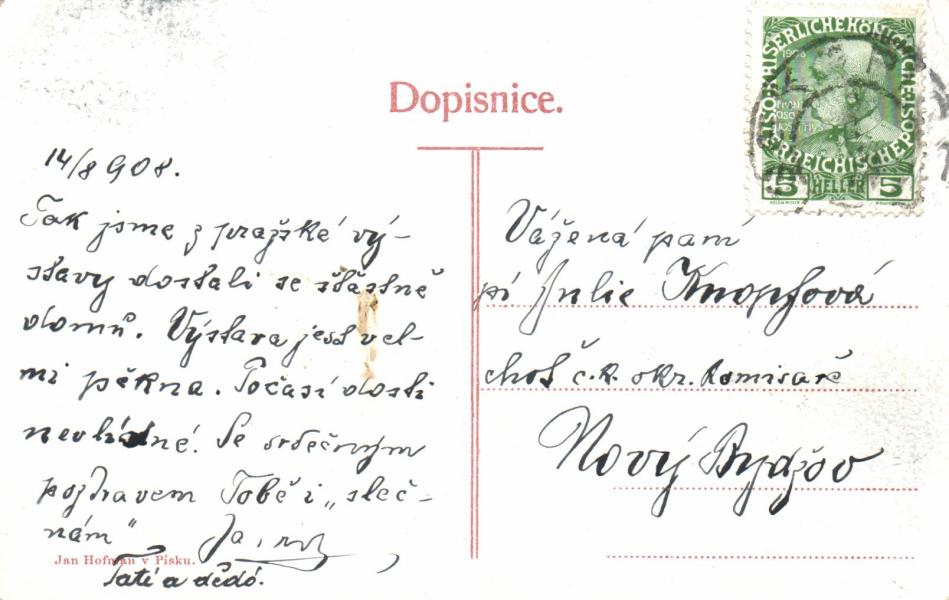 Dopisnice.
14/8 908.
Tak jsme z pražské vý-
stavy dostali se šťastně
domů. Výstava jest vel-
mi pěkna. Počasí dosti
nevlídné. Se srdečným
pozdravem Tobě i „sleč-
nám“
Tatí a dědó.
Jan Hofman v Písku.
Vážená paní
pí Julie Knopfová
choť č.k. okr. komisaře
Nový Bydžov
KAISERLICHE KÖNIGLICHE ÖSTERREICHISCHE POST
1908
5 HELLER 5